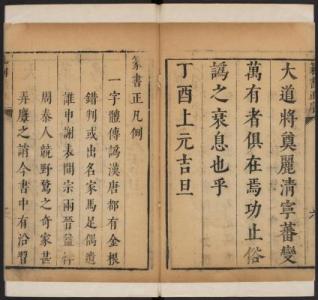 大道將奠麗清寧蕃變
萬有者俱在焉功止俗
譌之衰息也乎
丁酉上元吉旦
篆書正凡例
一字體傳譌漢唐都有金根
錯判或出名家馬足偶遺
誰申謝表間宗兩晉益行
周秦人競野鶩之奇家甚
弄麞之誚今書中有沿習